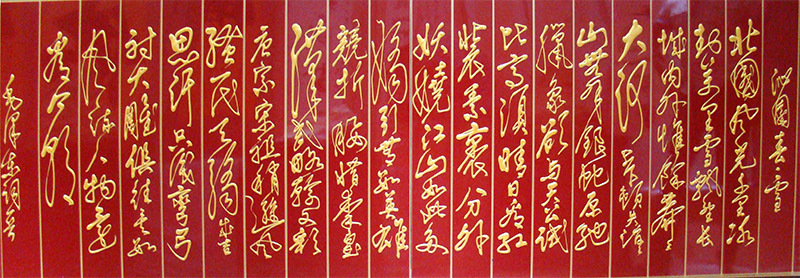 沁園春 雪
北國風光千里冰
封萬里雪飄望長
城內外惟餘莽莽
大河上下頓失滔滔
山舞銀蛇原馳
臘象欲與天公試
比高須晴日看紅
裝素裹分外
妖嬈江山如此多
嬌引無數英雄
競折腰惜秦皇
漢武略輸文彩
唐宗宋祖稍遜風
騷一代天驕成吉
思汗只識彎弓
射大雕俱往矣數
風流人物還
看今朝
毛澤東詞